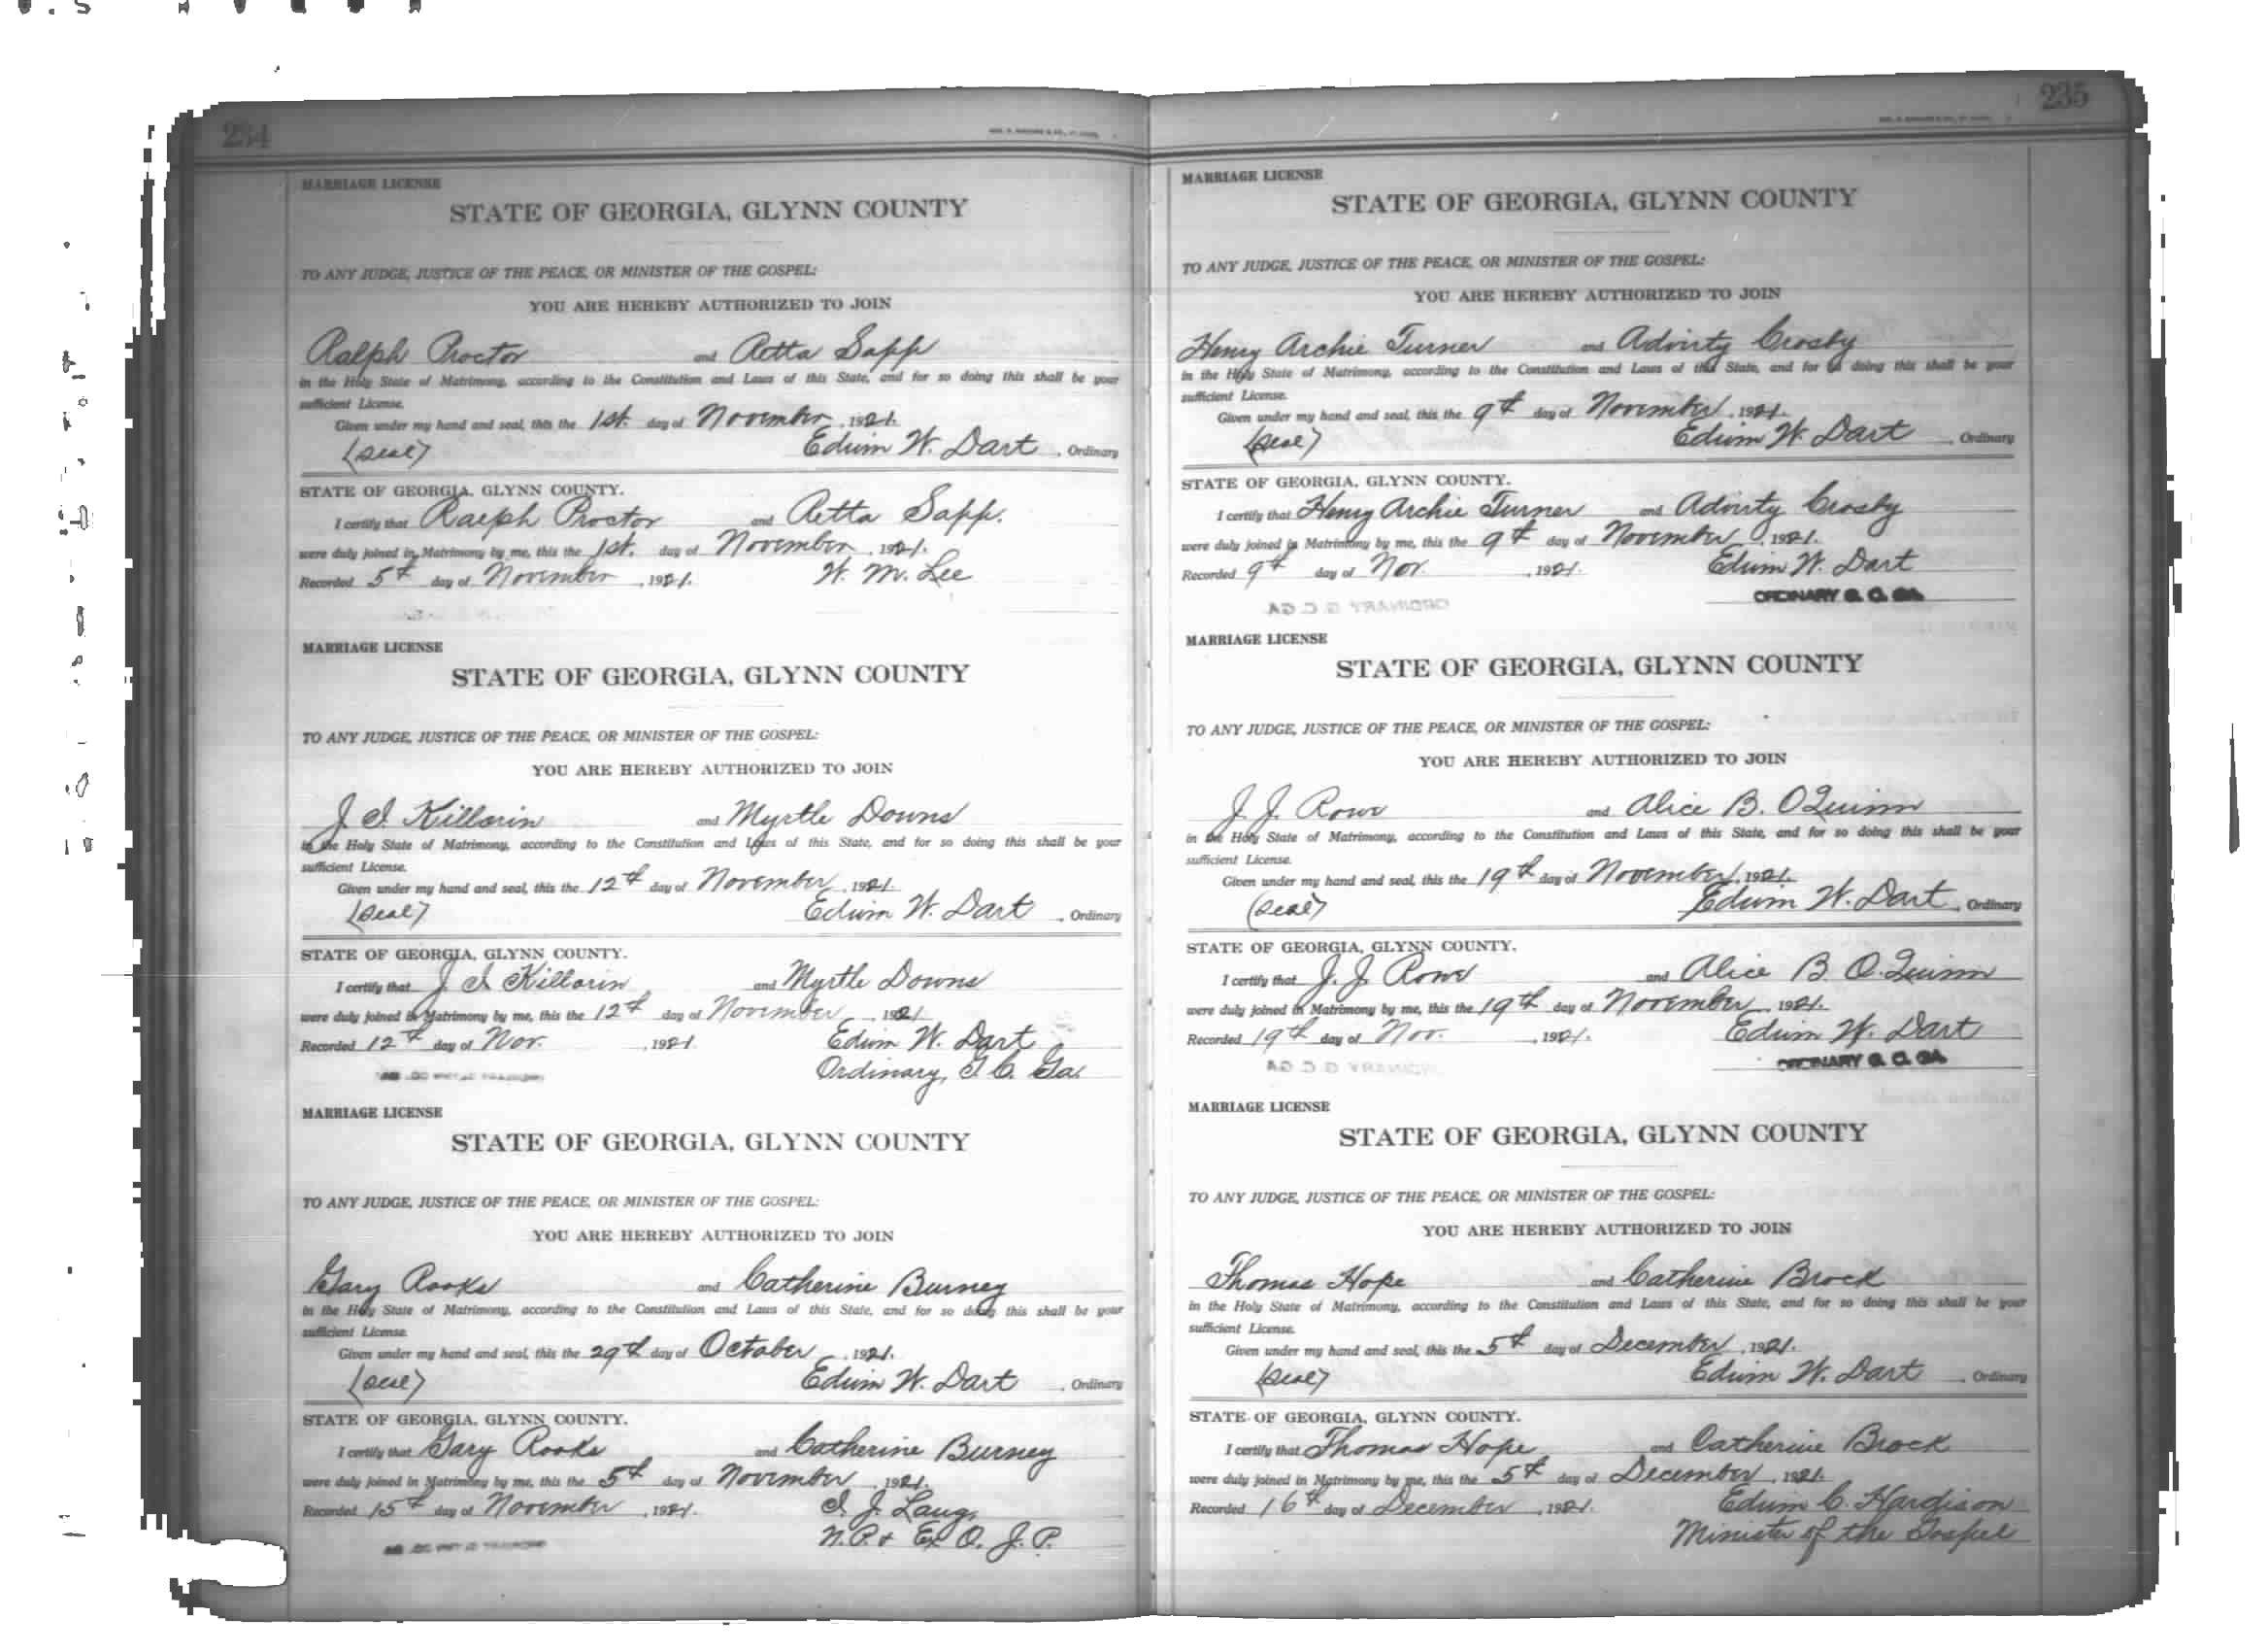 234
MARRIAGE LICENSE
STATE OF GEORGIA, GLYNN COUNTY
TO ANY JUDGE, JUSTICE OF THE PEACE, OR MINISTER OF THE GOSPEL:
YOU ARE HEREBY AUTHORIZED TO JOIN
Ralph Proctor and Retta Sapp
in the Holy State of Matrimony, according to the Constitution and Laws of this State, and for so doing this shall be your
sufficient License.
Given under my hand and seal, this the 1st. day of November, 1921.
(seal) Edwin W. Dart, Ordinary
STATE OF GEORGIA, GLYNN COUNTY.
I certify that Ralph Proctor and Retta Sapp.
were duly joined in Matrimony by me, this the 1st. day of November, 1921.
Recorded 5th day of November, 1921. W. M. Lee
MARRIAGE LICENSE
STATE OF GEORGIA, GLYNN COUNTY
TO ANY JUDGE, JUSTICE OF THE PEACE, OR MINISTER OF THE GOSPEL:
YOU ARE HEREBY AUTHORIZED TO JOIN
J. I. Killorin and Myrtle Downs
in the Holy State of Matrimony, according to the Constitution and Laws of this State, and for so doing this shall be your
sufficient License.
Given under my hand and seal, this the 12th day of November, 1921.
(seal) Edwin W. Dart, Ordinary
STATE OF GEORGIA, GLYNN COUNTY.
I certify that J. I. Killorin and Myrtle Downs
were duly joined in Matrimony by me, this the 12th day of November, 1921
Recorded 12th day of Nov., 1921 Edwin W. Dart
Ordinary, G. C. Ga.
MARRIAGE LICENSE
STATE OF GEORGIA, GLYNN COUNTY
TO ANY JUDGE, JUSTICE OF THE PEACE, OR MINISTER OF THE GOSPEL:
YOU ARE HEREBY AUTHORIZED TO JOIN
Gary Rooks and Catherine Burney
in the Holy State of Matrimony, according to the Constitution and Laws of this State, and for so doing this shall be your
sufficient License.
Given under my hand and seal, this the 29th day of October, 1921.
(seal) Edwin W. Dart, Ordinary
STATE OF GEORGIA, GLYNN COUNTY.
I certify that Gary Rooks and Catherine Burney
were duly joined in Matrimony by me, this the 5th day of November, 1921.
Recorded 15th day of November, 1921. I. J. Lang,
N. P. & Ex O. J. P.
235
MARRIAGE LICENSE
STATE OF GEORGIA, GLYNN COUNTY
TO ANY JUDGE, JUSTICE OF THE PEACE, OR MINISTER OF THE GOSPEL:
YOU ARE HEREBY AUTHORIZED TO JOIN
Henry Archie Turner and Advirty Crosby
in the Holy State of Matrimony, according to the Constitution and Laws of this State, and for so doing this shall be your
sufficient License.
Given under my hand and seal, this the 9th day of November, 1921.
(seal) Edwin W. Dart, Ordinary
STATE OF GEORGIA, GLYNN COUNTY.
I certify that Henry Archie Turner and Advirty Crosby
were duly joined in Matrimony by me, this the 9th day of November, 1921.
Recorded 9th day of Nov., 1921. Edwin W. Dart
ORDINARY G. C. GA.
MARRIAGE LICENSE
STATE OF GEORGIA, GLYNN COUNTY
TO ANY JUDGE, JUSTICE OF THE PEACE, OR MINISTER OF THE GOSPEL:
YOU ARE HEREBY AUTHORIZED TO JOIN
J. J. Rowe and Alice B. O'Quinn
in the Holy State of Matrimony, according to the Constitution and Laws of this State, and for so doing this shall be your
sufficient License.
Given under my hand and seal, this the 19th day of November, 1921.
(seal) Edwin W. Dart, Ordinary
STATE OF GEORGIA, GLYNN COUNTY.
I certify that J. J. Rowe and Alice B. O.Quinn
were duly joined in Matrimony by me, this the 19th day of November, 1921.
Recorded 19th day of Nov., 1921. Edwin W. Dart
ORDINARY G. C. GA.
MARRIAGE LICENSE
STATE OF GEORGIA, GLYNN COUNTY
TO ANY JUDGE, JUSTICE OF THE PEACE, OR MINISTER OF THE GOSPEL:
YOU ARE HEREBY AUTHORIZED TO JOIN
Thomas Hope and Catherine Brock
in the Holy State of Matrimony, according to the Constitution and Laws of this State, and for so doing this shall be your
sufficient License.
Given under my hand and seal, this the 5th day of December, 1921.
(seal) Edwin W. Dart, Ordinary
STATE OF GEORGIA, GLYNN COUNTY.
I certify that Thomas Hope and Catherine Brock
were duly joined in Matrimony by me, this the 5th day of December, 1921.
Recorded 16th day of December, 1921. Edwin C. Hardison
Minister of the Gospel